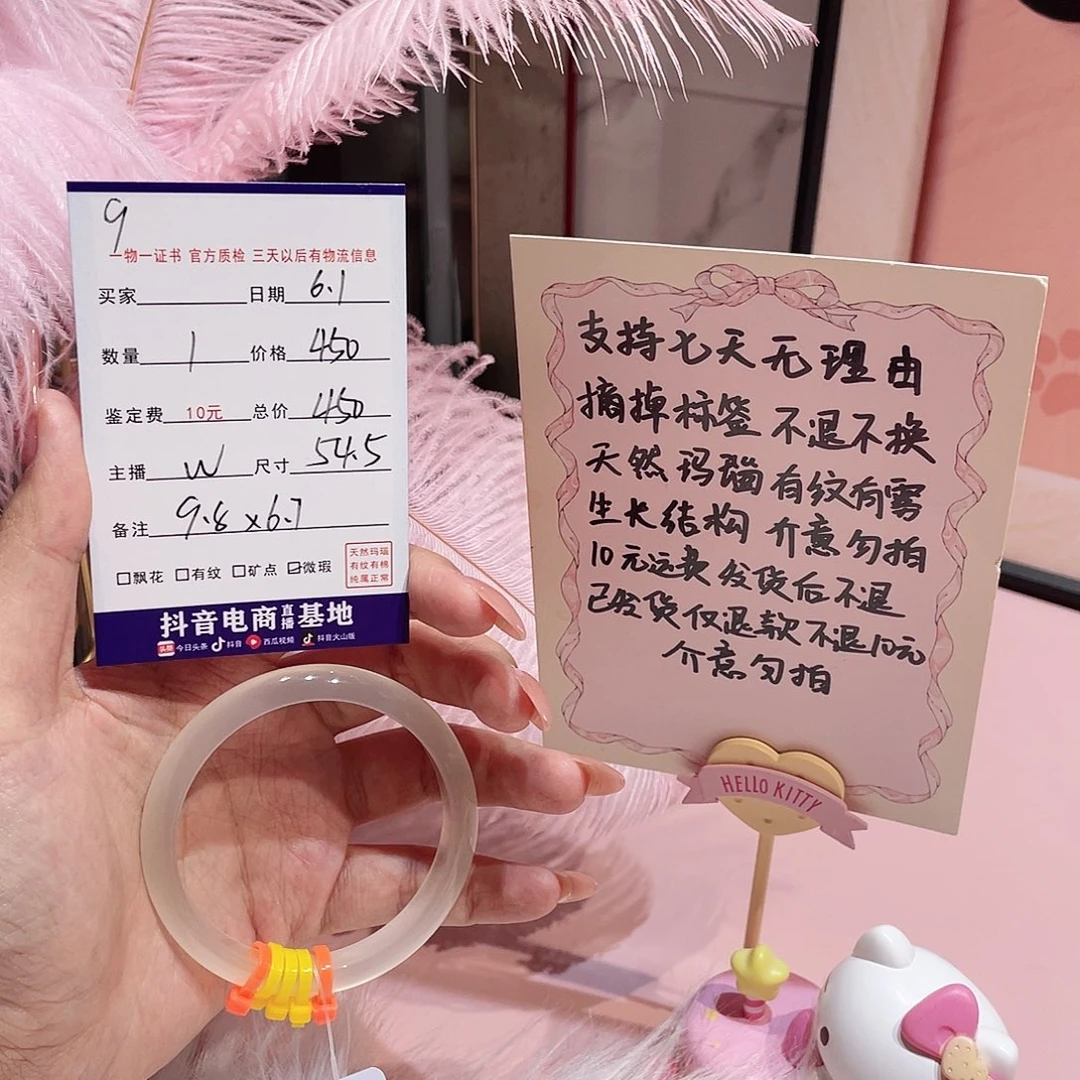 9
一物一证书 官方质检 三天以后有物流信息
买家 日期 6.1
数量 1 价格 450
鉴定费 10元 总价 450
主播 W 尺寸 54.5
备注 9.8x6.7
飘花 有纹 矿点 微瑕
天然玛瑙
有纹有棉
纯属正常
抖音电商直播基地
头条 今日头条 抖音 西瓜视频 抖音火山版
支持七天无理由
摘掉标签不退不换
天然玛瑙有纹有雾
生长结构 介意勿拍
10元运费发货后不退
已发货仅退款不退10元
介意勿拍
HELLO KITTY